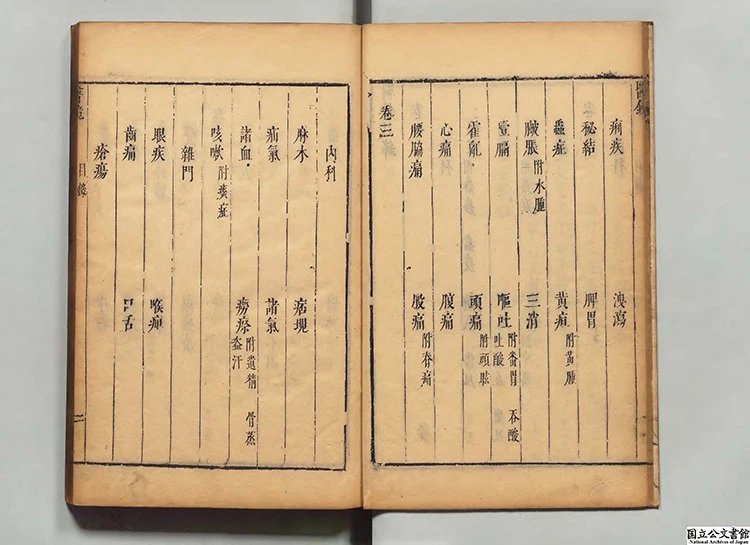 醫鏡
痢疾 洩瀉
秘結 脾胃
蟲症 黃疸 附黃腫
臌脹 附水腫 三消
噎膈 嘔吐 附番胃 吞酸 吐酸
霍亂 頭痛 附頭眩
心痛 腹痛
腰脇痛 股痛 附脊痛
卷三
內科
麻木
疝氣 諸氣
諸血 癆瘵 附遺精 骨蒸 盜汗
咳嗽
雜門
眼疾 喉
齒痛 口舌
瘡瘍
醫鏡 目錄 二
国立公文書館
National Archives of Japan